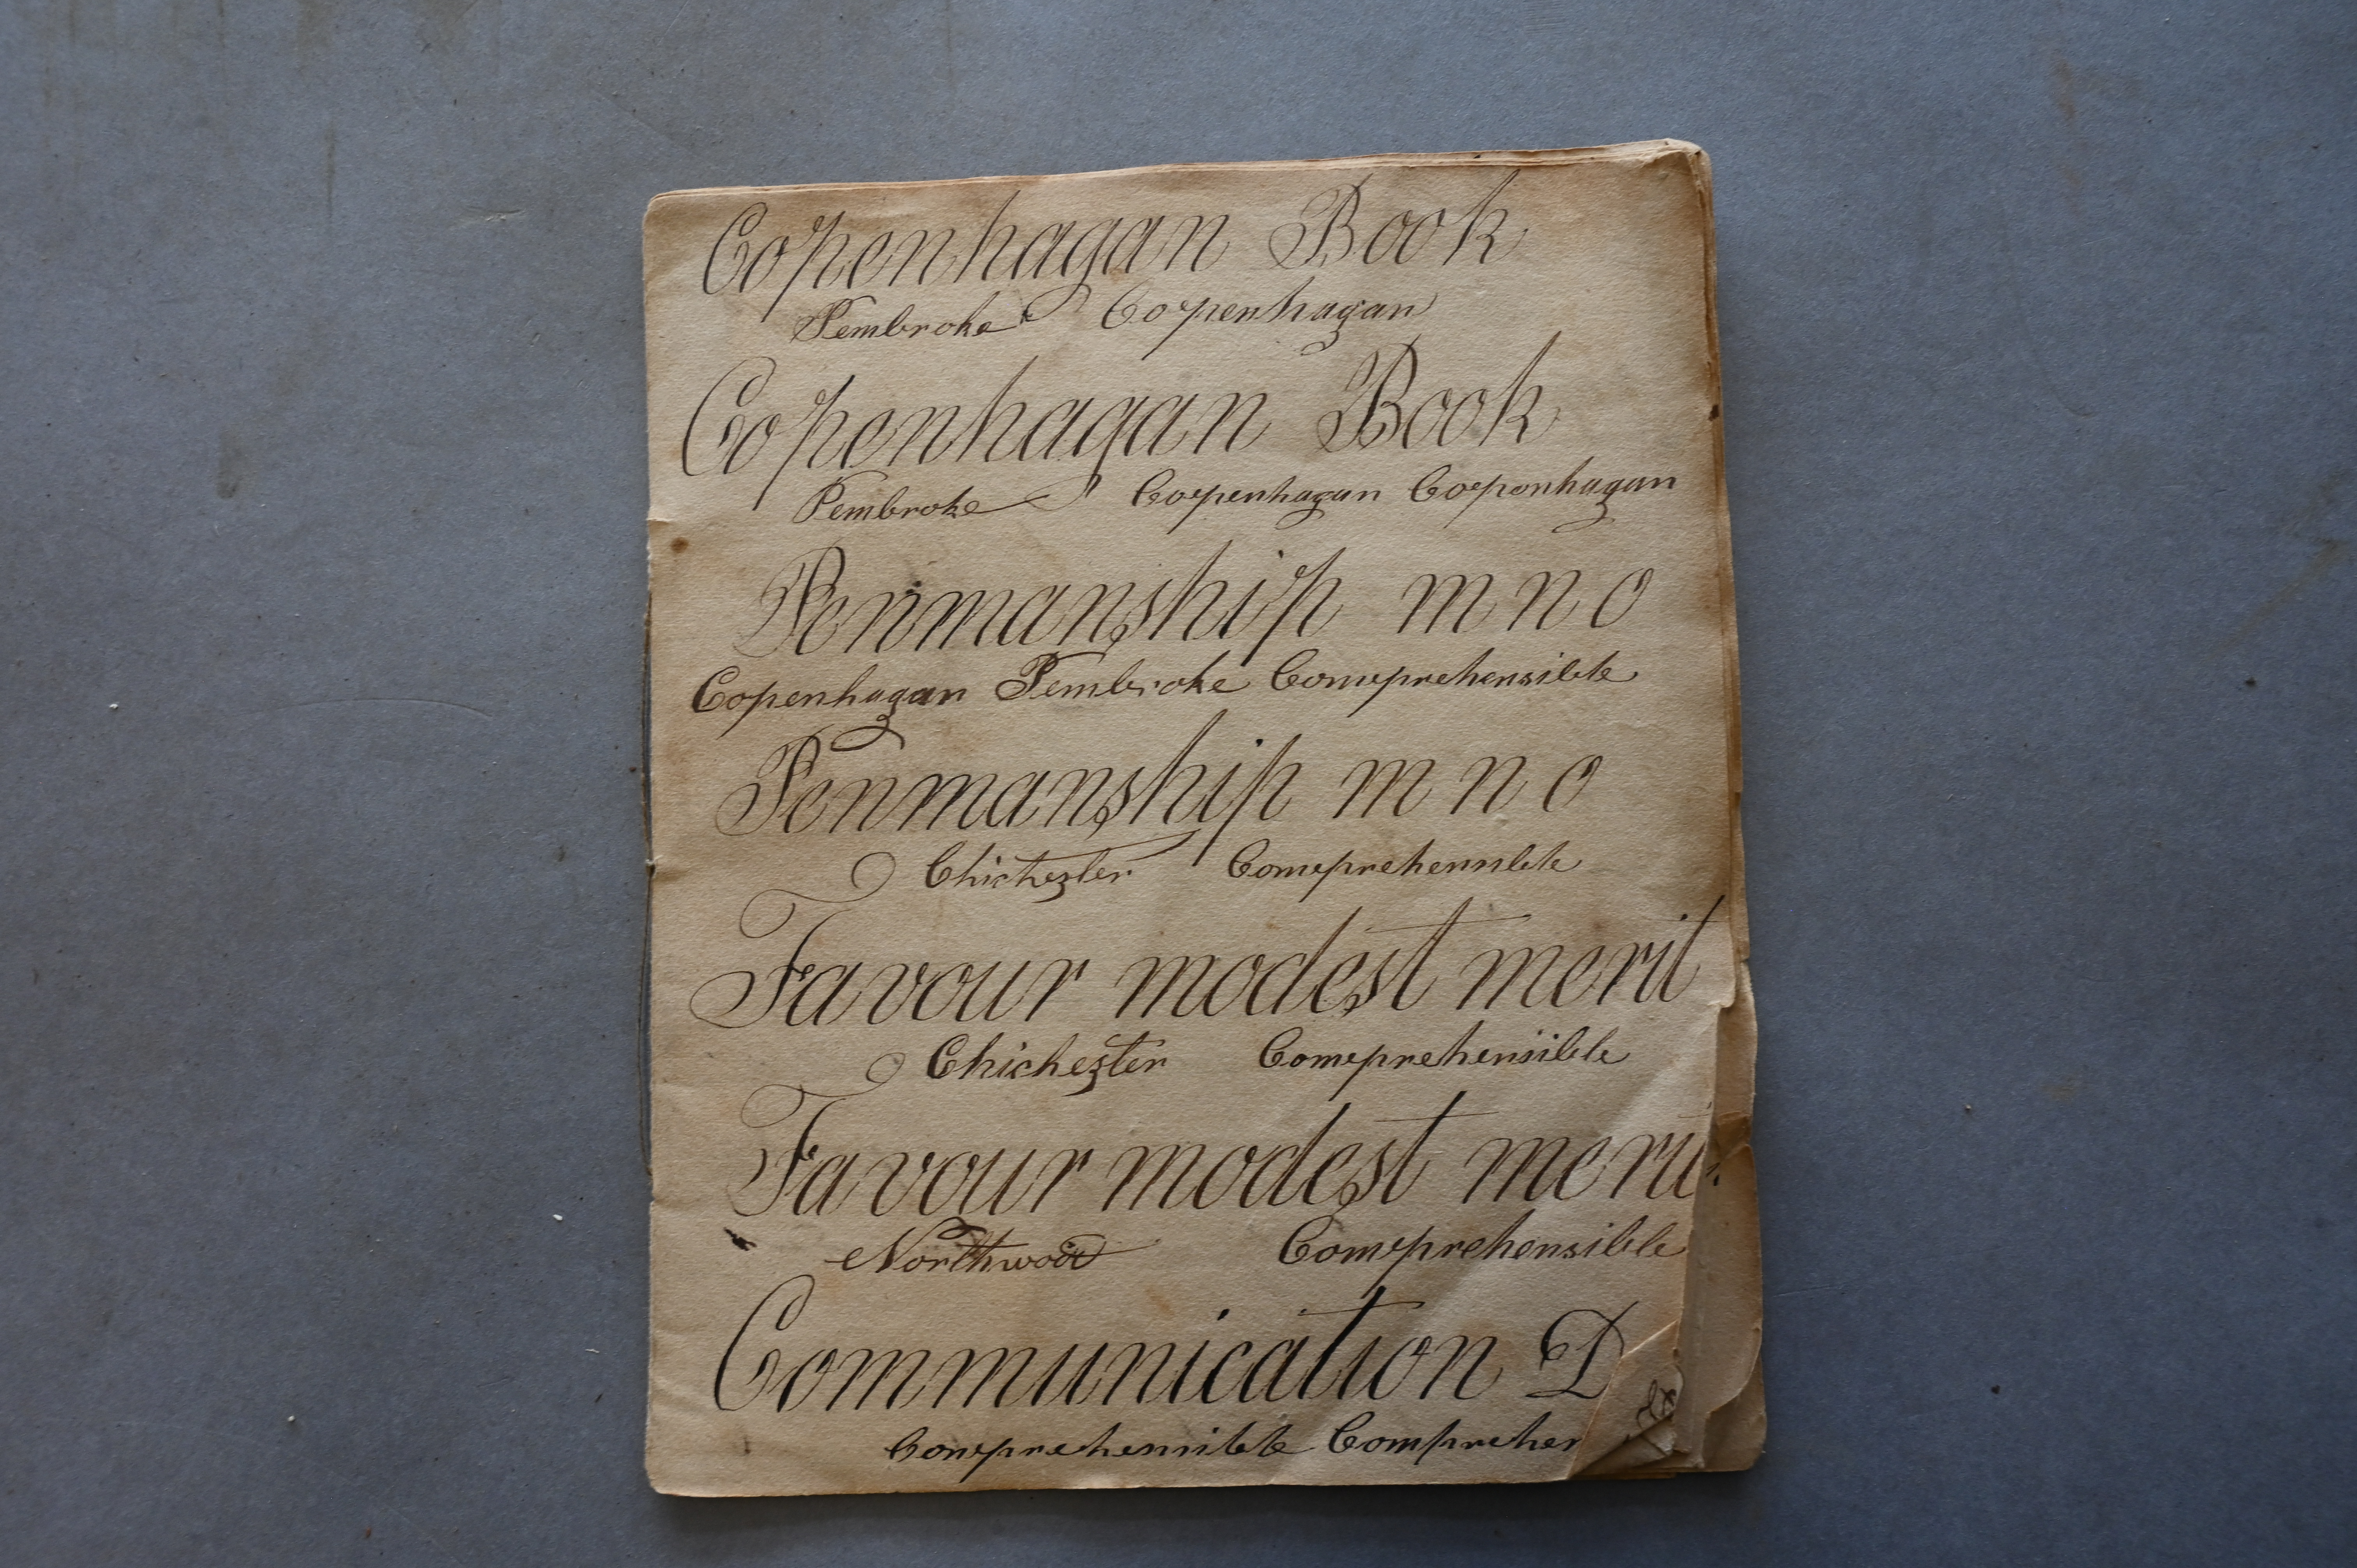 Copenhagan Book
Pembroke Copenhagan
Copenhagan Book
Pembroke Copenhagan Copenhagan
Penmanship m n o
Copenhagan Pembroke Comeprehensible
Penmanship m n o
Chichester Comeprehensible
Favour modest merit
Chichester Comeprehensible
Favour modest merit
Northwood Comeprehensible
Communication D
Comeprehensible Comprehen